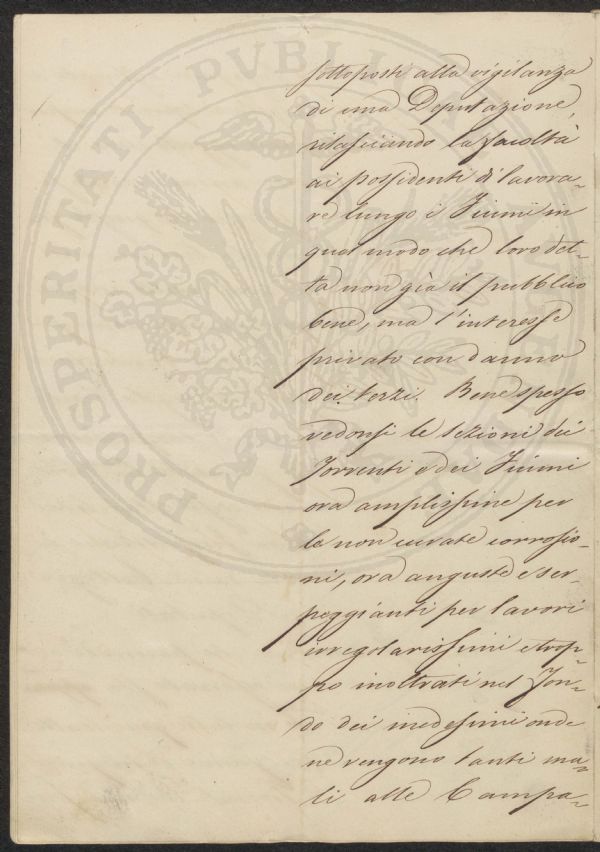 PROSPERITATI PVBLI
sottoposti alla vigilanza
di una Deputazione,
rilasciando la facoltà
ai possidenti di lavora-
re lungo i Fiumi in
quel modo che loro det-
ta non già il pubblico
bene, ma l'interesse
privato con danno
dei terzi. Bene spesso
vedonsi le sezioni dei
Torrenti e dei Fiumi
ora amplissime per
le non curate corrosio-
ni, ora anguste e ser-
peggianti per lavori
irregolarissimi e trop-
po inoltrati nel Fon-
do dei medesimi onde
ne vengono tanti ma-
li alle Campa-